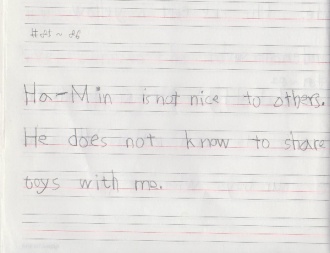 Ha-Min is not nice to others.
He does not know to share
toys with me.